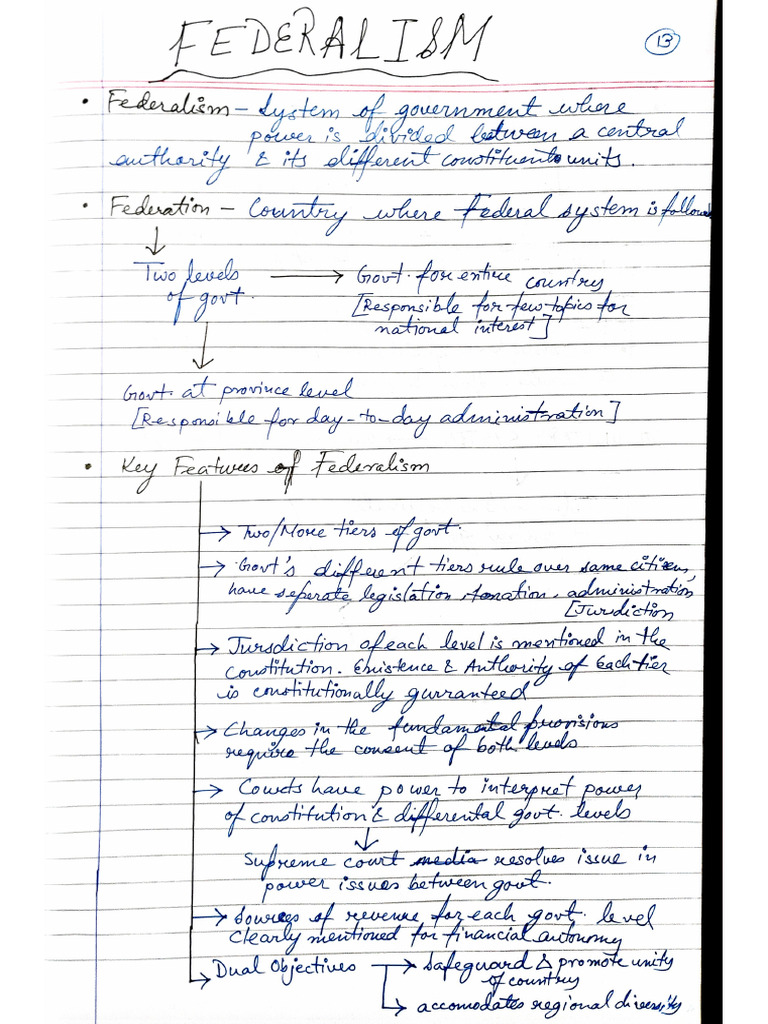 FEDERALISM
13
• Federalism - System of government where
power is divided between a central
authority & its different constituents units.
• Federation - Country where Federal system is followed
Two levels → Govt. for entire country
of govt. [Responsible for few topics for
national interest]
Govt. at province level
[Responsible for day-to-day administration]
• Key Features of Federalism
→ Two/More tiers of govt.
→ Govt's different tiers rule over same citizens,
have seperate legislation, taxation, administration
[Jurdiction
→ Jursdiction of each level is mentioned in the
constitution. Existence & Authority of Each tier
is constitutionally gurranteed
→ Changes in the fundamental provisions
require the consent of both levels
→ Courts have power to interpret power
of constitution & differental govt. levels
Supreme court media resolves issue in
power issues between govt.
→ Sources of revenue for each govt. level
clearly mentioned for financial autonomy
→ Dual Objectives → Safeguard & promote unity
of country
→ accomodates regional diversity